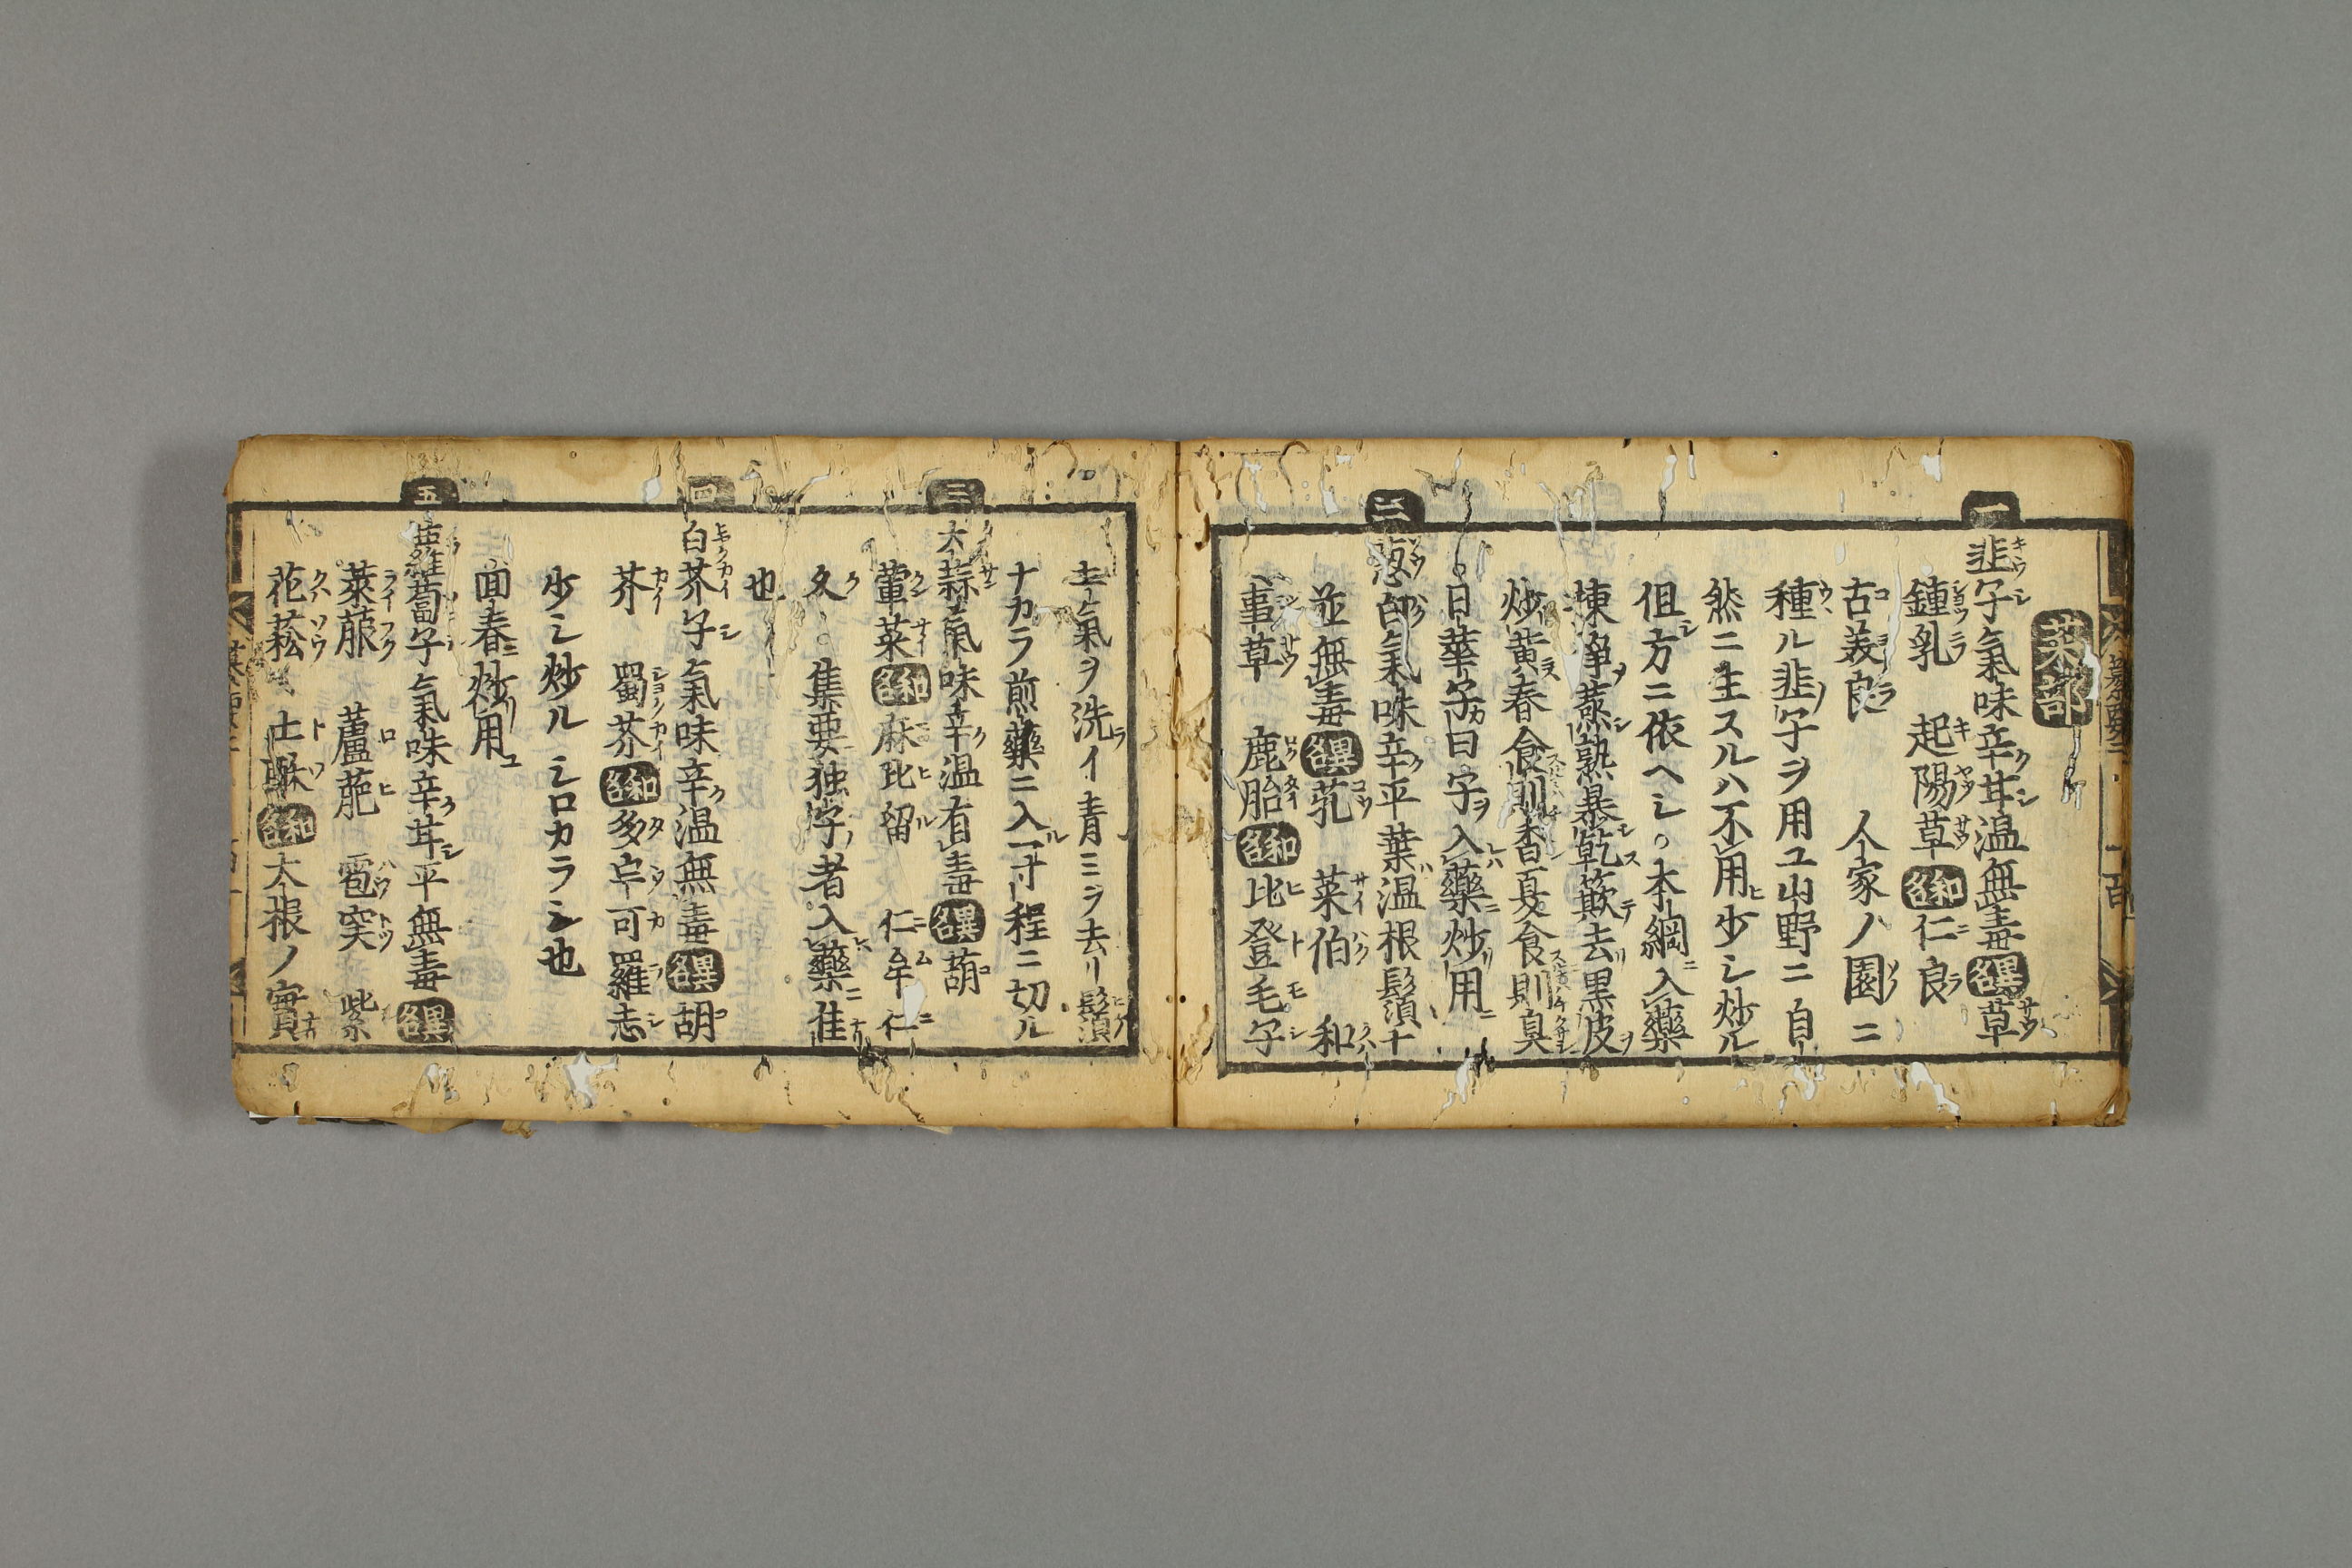 菜部
一
韭子氣味辛甘温無毒異名草
鍾乳 起陽草和名仁良
古美良 人家ノ園ニ
種ル韭子ヲ用ユ山野ニ自
然ニ生スルハ不用少シ炒ル
但方ニ依ヘシ○本綱入藥
揀淨蒸熟暴乾簸去黒皮
炒黄春食則香夏食則臭
日華子曰字入藥炒用
二
葱白氣味辛平葉温根鬚
並無毒異名芤 菜伯 和
事草 鹿胎和名比登毛字
土氣ヲ洗イ青ミヲ去リ鬚
ナカラ煎藥ニ入一寸程ニ切ル
三
大蒜氣味辛温有毒異名葫
葷菜和名麻比留 仁牟仁
久○集要独字者入藥佳
也
四
白芥子氣味辛温無毒異名胡
芥 蜀芥和名多可羅志
少シ炒ルシロカラシ也
回春炒用
五
蘿蔔子氣味辛甘平無毒異名
萊菔 蘆萉 雹突 紫
花菘 土酥和名大根ノ實